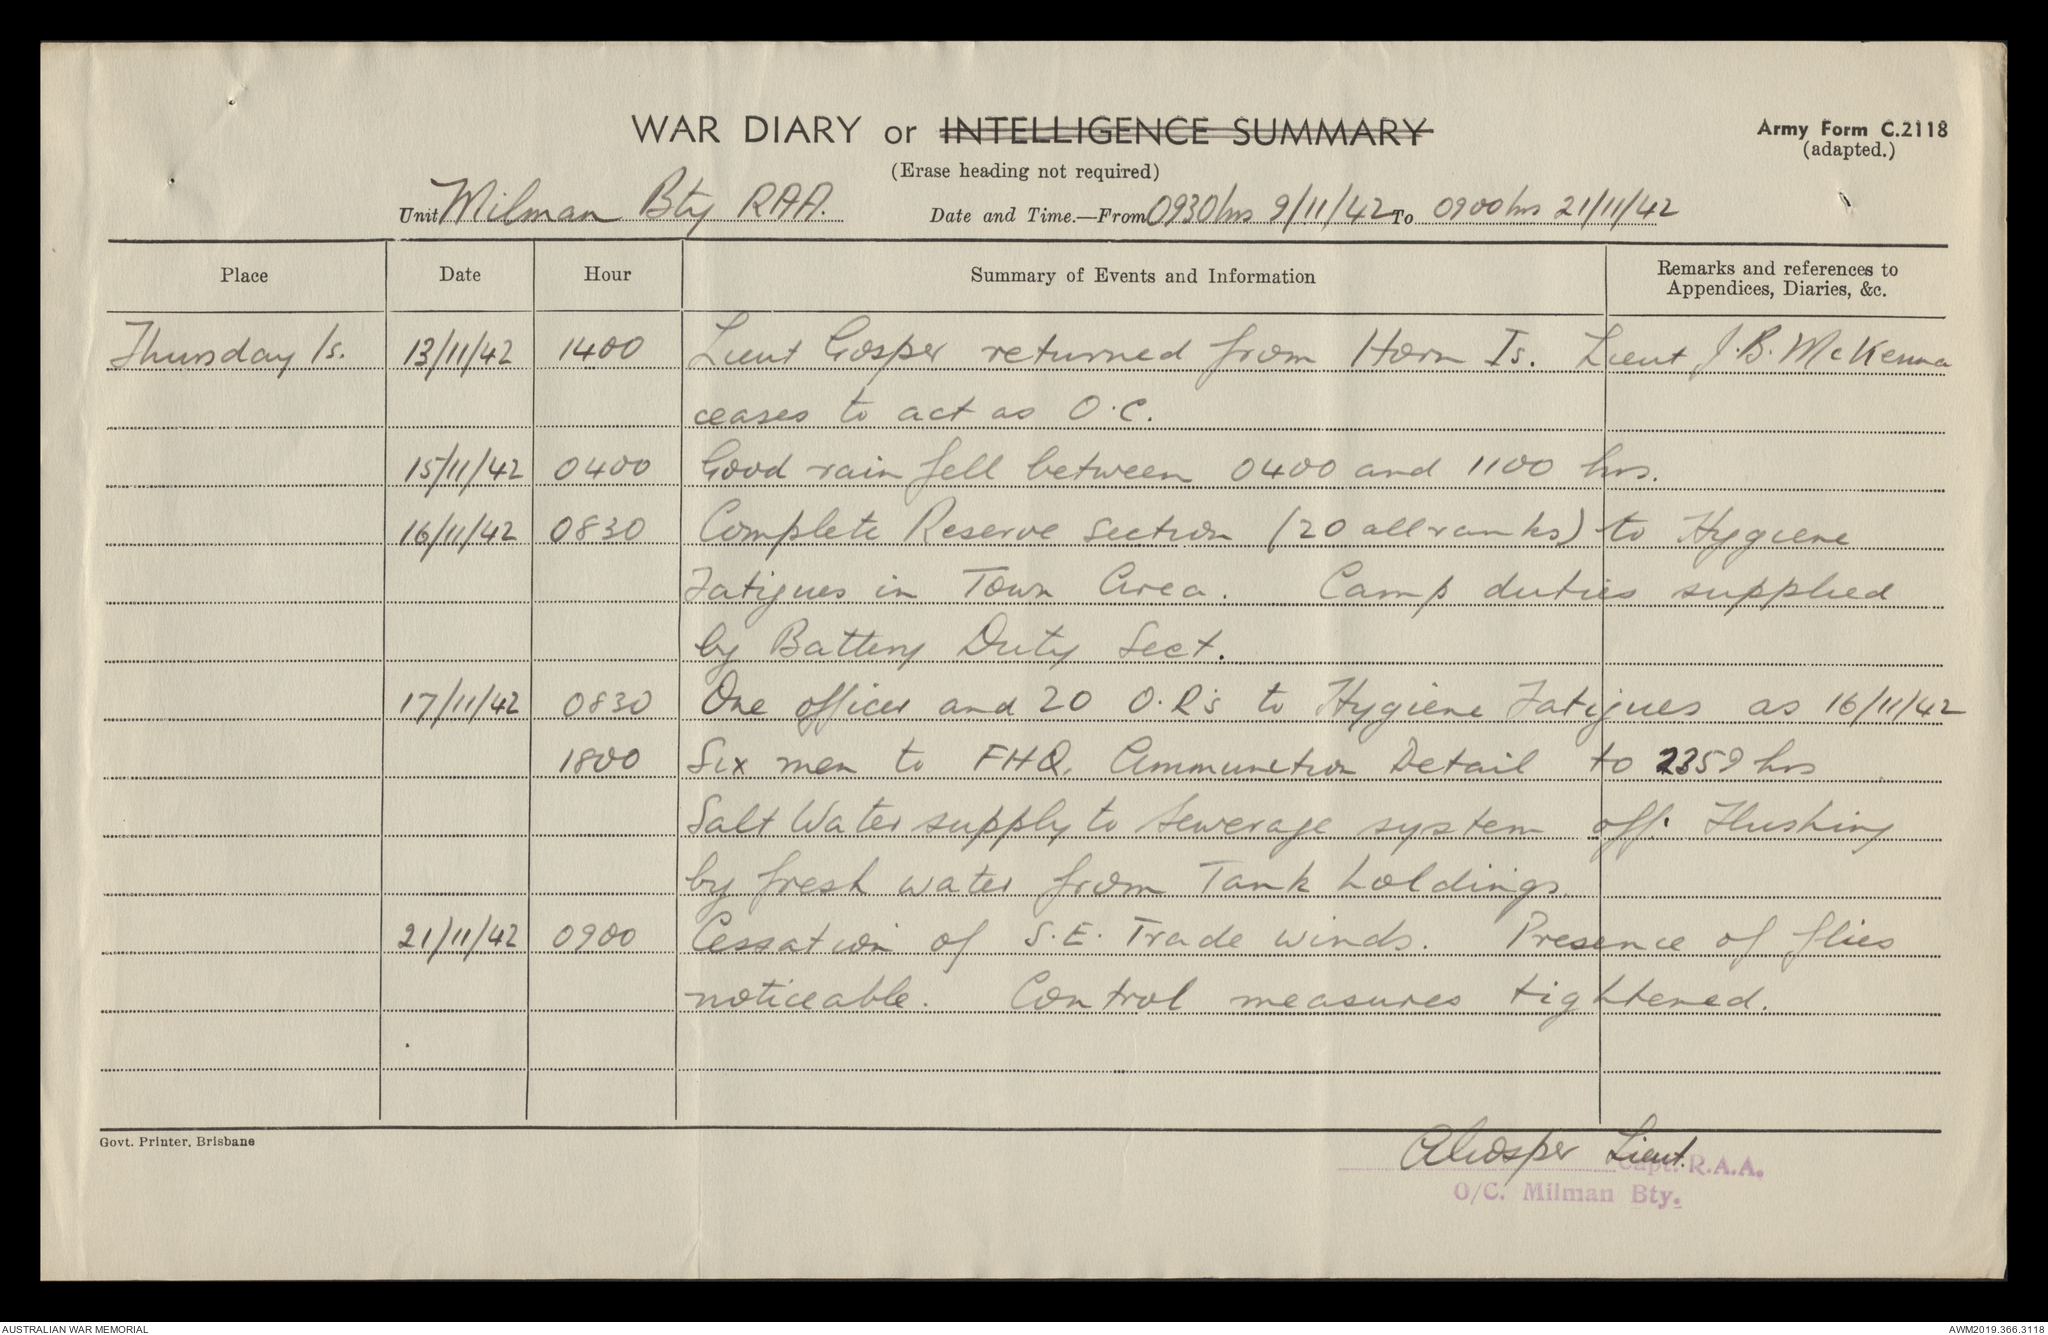 WAR DIARY or INTELLIGENCE SUMMARY
Army Form C.2118
(adapted.)
(Erase heading not required)
Unit Milman Bty RAA. Date and Time.—From 0930hrs 9/11/42 To 0900hrs 21/11/42
Place Date Hour Summary of Events and Information Remarks and references to Appendices, Diaries, &c.
Thursday Is. 13/11/42 1400 Lieut Gosper returned from Horn Is. Lieut J.B. McKenna
ceases to act as O.C.
15/11/42 0400 Good rain fell between 0400 and 1100 hrs.
16/11/42 0830 Complete Reserve Section (20 all ranks) to Hygiene
Fatigues in Town Area. Camp duties supplied
by Battery Duty Sect.
17/11/42 0830 One officer and 20 O.R's to Hygiene Fatigues as 16/11/42
1800 Six men to FHQ. Ammunition Detail to 2359 hrs
Salt Water supply to Sewerage system off. Flushing
by fresh water from Tank holdings.
21/11/42 0900 Cessation of S.E. Trade winds. Presence of flies
noticeable. Control measures tightened.
Govt. Printer, Brisbane
AGosper Lieut.
Capt. R.A.A.
O/C. Milman Bty.
AUSTRALIAN WAR MEMORIAL
AWM2019.366.3118